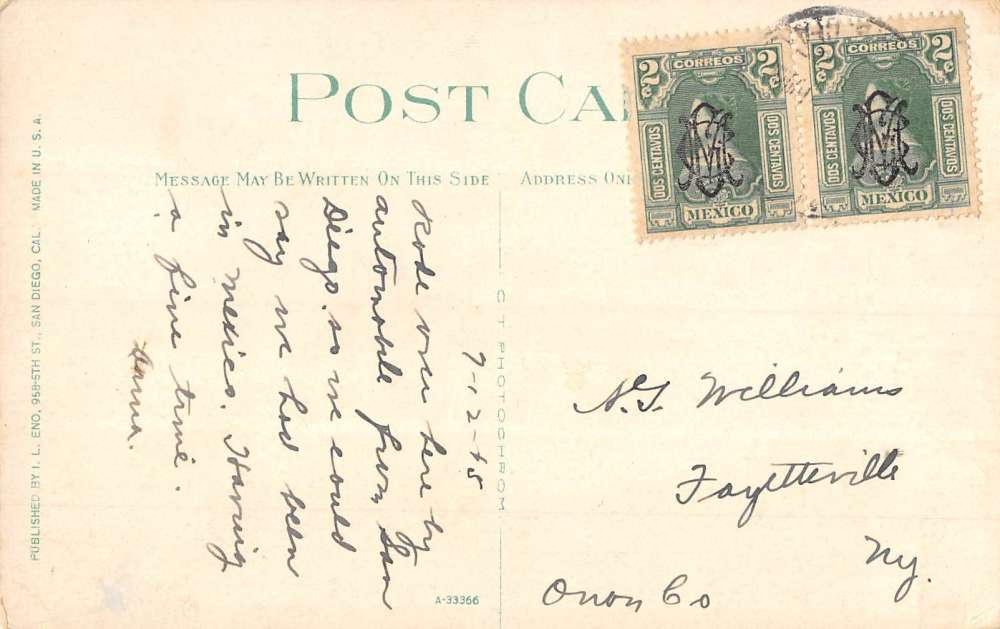 POST CA
MESSAGE MAY BE WRITTEN ON THIS SIDE
ADDRESS ONL
2 CORREOS 2
DOS CENTAVOS
DOS CENTAVOS
MEXICO
2 CORREOS 2
DOS CENTAVOS
DOS CENTAVOS
MEXICO
7-12-15
Rode over here by
automobile from San
Diego. so we could
say we had been
in Mexico. Having
a fine time.
Anna.
A.G. Williams
Fayetteville
Ny.
Onon Co
C T PHOTOCHROM
A-33366
PUBLISHED BY I. L. ENO, 958-5TH ST., SAN DIEGO, CAL. MADE IN U. S. A.